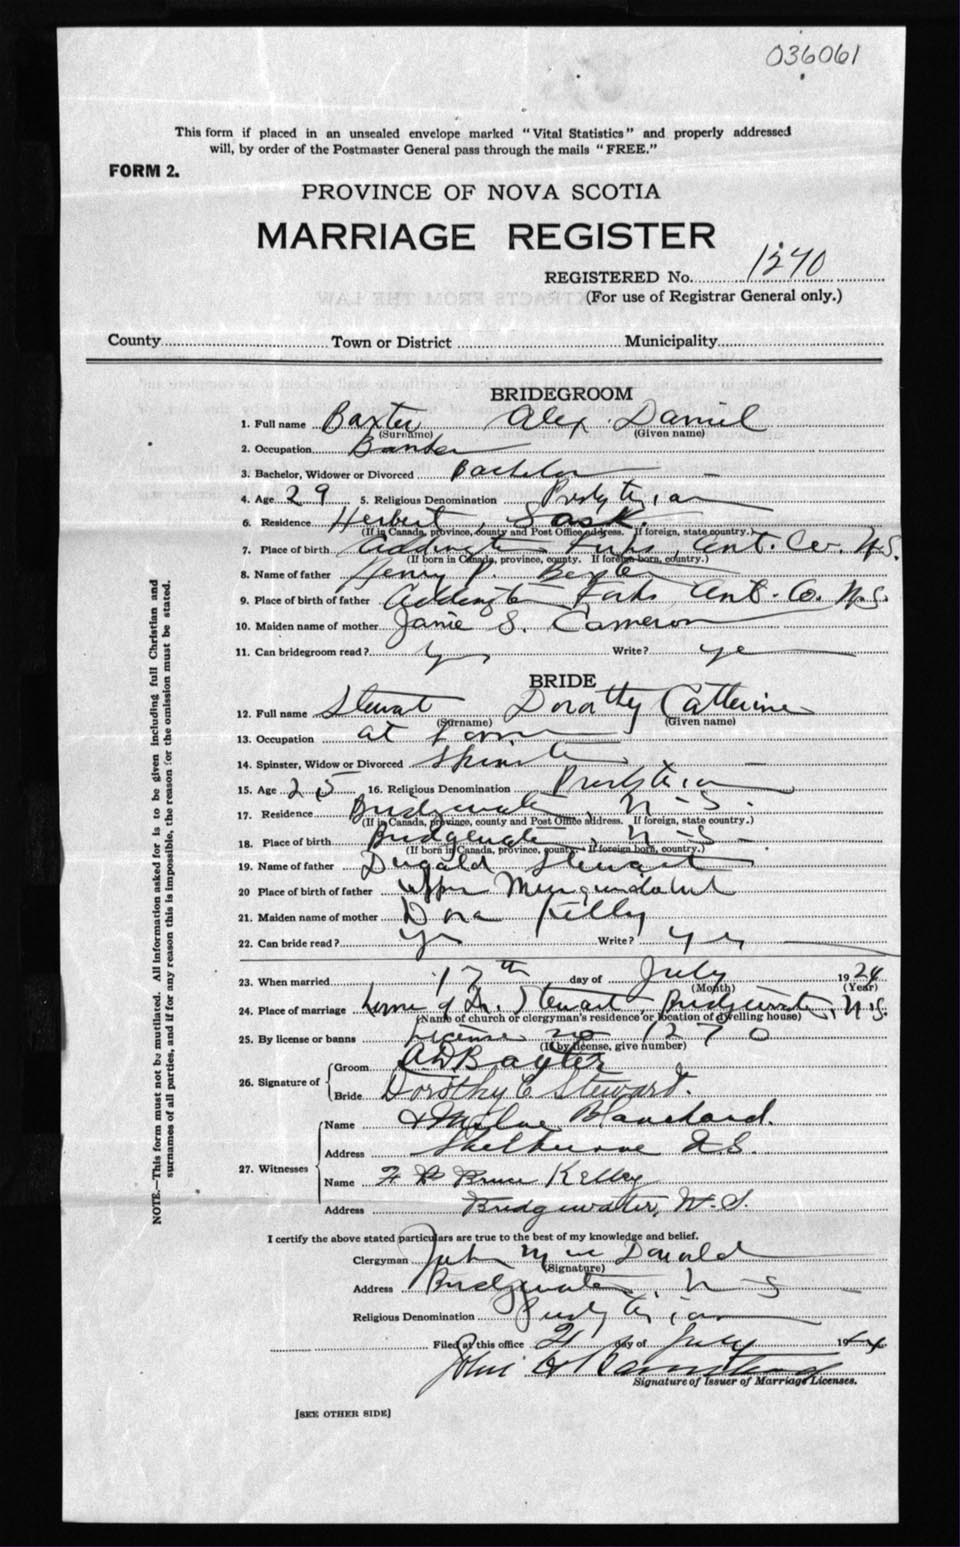 036061
This form if placed in an unsealed envelope marked "Vital Statistics" and properly addressed
will, by order of the Postmaster General pass through the mails "FREE."
FORM 2.
PROVINCE OF NOVA SCOTIA
MARRIAGE REGISTER
REGISTERED No. 1270
(For use of Registrar General only.)
County Town or District Municipality
BRIDEGROOM
1. Full name Baxter Alex Daniel
(Surname) (Given name)
2. Occupation Banker
3. Bachelor, Widower or Divorced Bachelor
4. Age 29 5. Religious Denomination Presbyterian
6. Residence Herbert, Sask.
(If in Canada, province, county and Post Office address. If foreign, state country.)
7. Place of birth Addington Forks, Ant. Co. N.S.
(If born in Canada, province, county. If foreign born, country.)
8. Name of father Henry P. Baxter
9. Place of birth of father Addington Forks Ant. Co. N.S.
10. Maiden name of mother Janie S. Cameron
11. Can bridegroom read? Yes Write? yes
BRIDE
12. Full name Stewart Dorothy Catherine
(Surname) (Given name)
13. Occupation at Home
14. Spinster, Widow or Divorced Spinster
15. Age 25 16. Religious Denomination Presbyterian
17. Residence Bridgewater, N-S.
(If in Canada, province, county and Post Office address. If foreign, state country.)
18. Place of birth Bridgewater, N-S
(If born in Canada, province, county. If foreign born, country.)
19. Name of father Dugald Stewart
20 Place of birth of father Upper Musquodoboit
21. Maiden name of mother Dora Kelly
22. Can bride read? Yes Write? Yes
23. When married 17th day of July 1924
(Month) (Year)
24. Place of marriage home of Dr. Stewart, Bridgewater, N.S.
(Name of church or clergyman's residence or location of dwelling house)
25. By license or banns License no 1270
(If by license, give number)
26. Signature of
Groom A D Baxter
Bride Dorothy C Stewart.
27. Witnesses
Name Milne Blanchard.
Address Shelburne N.S.
Name Bruce Kelley
Address Bridgewater, N.S.
I certify the above stated particulars are true to the best of my knowledge and belief.
Clergyman John MacDonald
(Signature)
Address Bridgewater, N-S
Religious Denomination Presbyterian
Filed at this office 21 day of July 1924
John
Signature of Issuer of Marriage Licenses.
[SEE OTHER SIDE]
NOTE.—This form must not be mutilated. All information asked for is to be given including full Christian and
surnames of all parties, and if for any reason this is impossible, the reason for the omission must be stated.